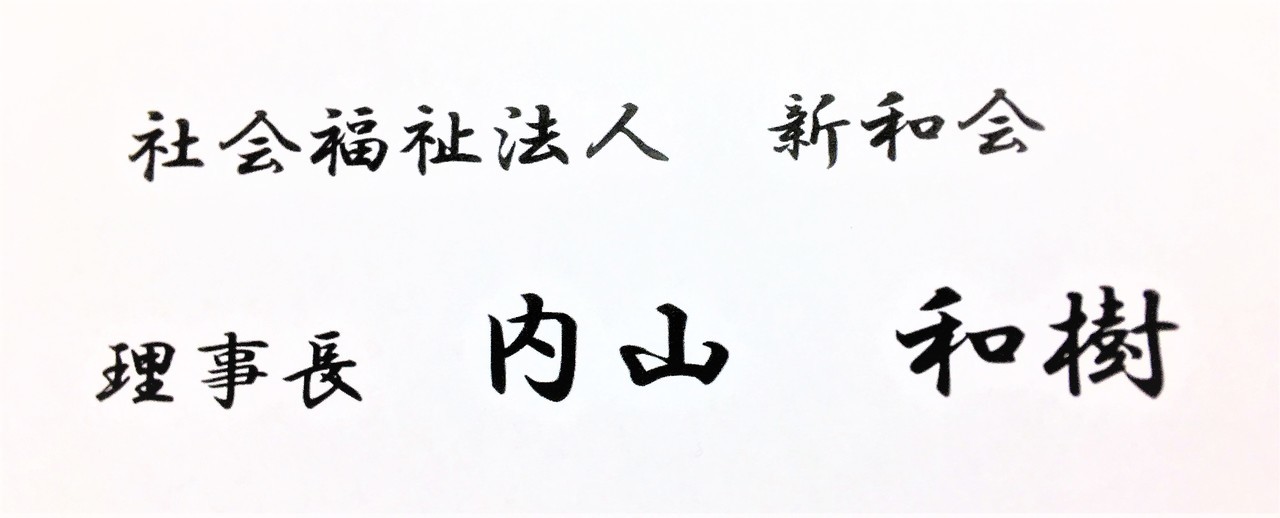 社会福祉法人　新和会
理事長　内山　和樹